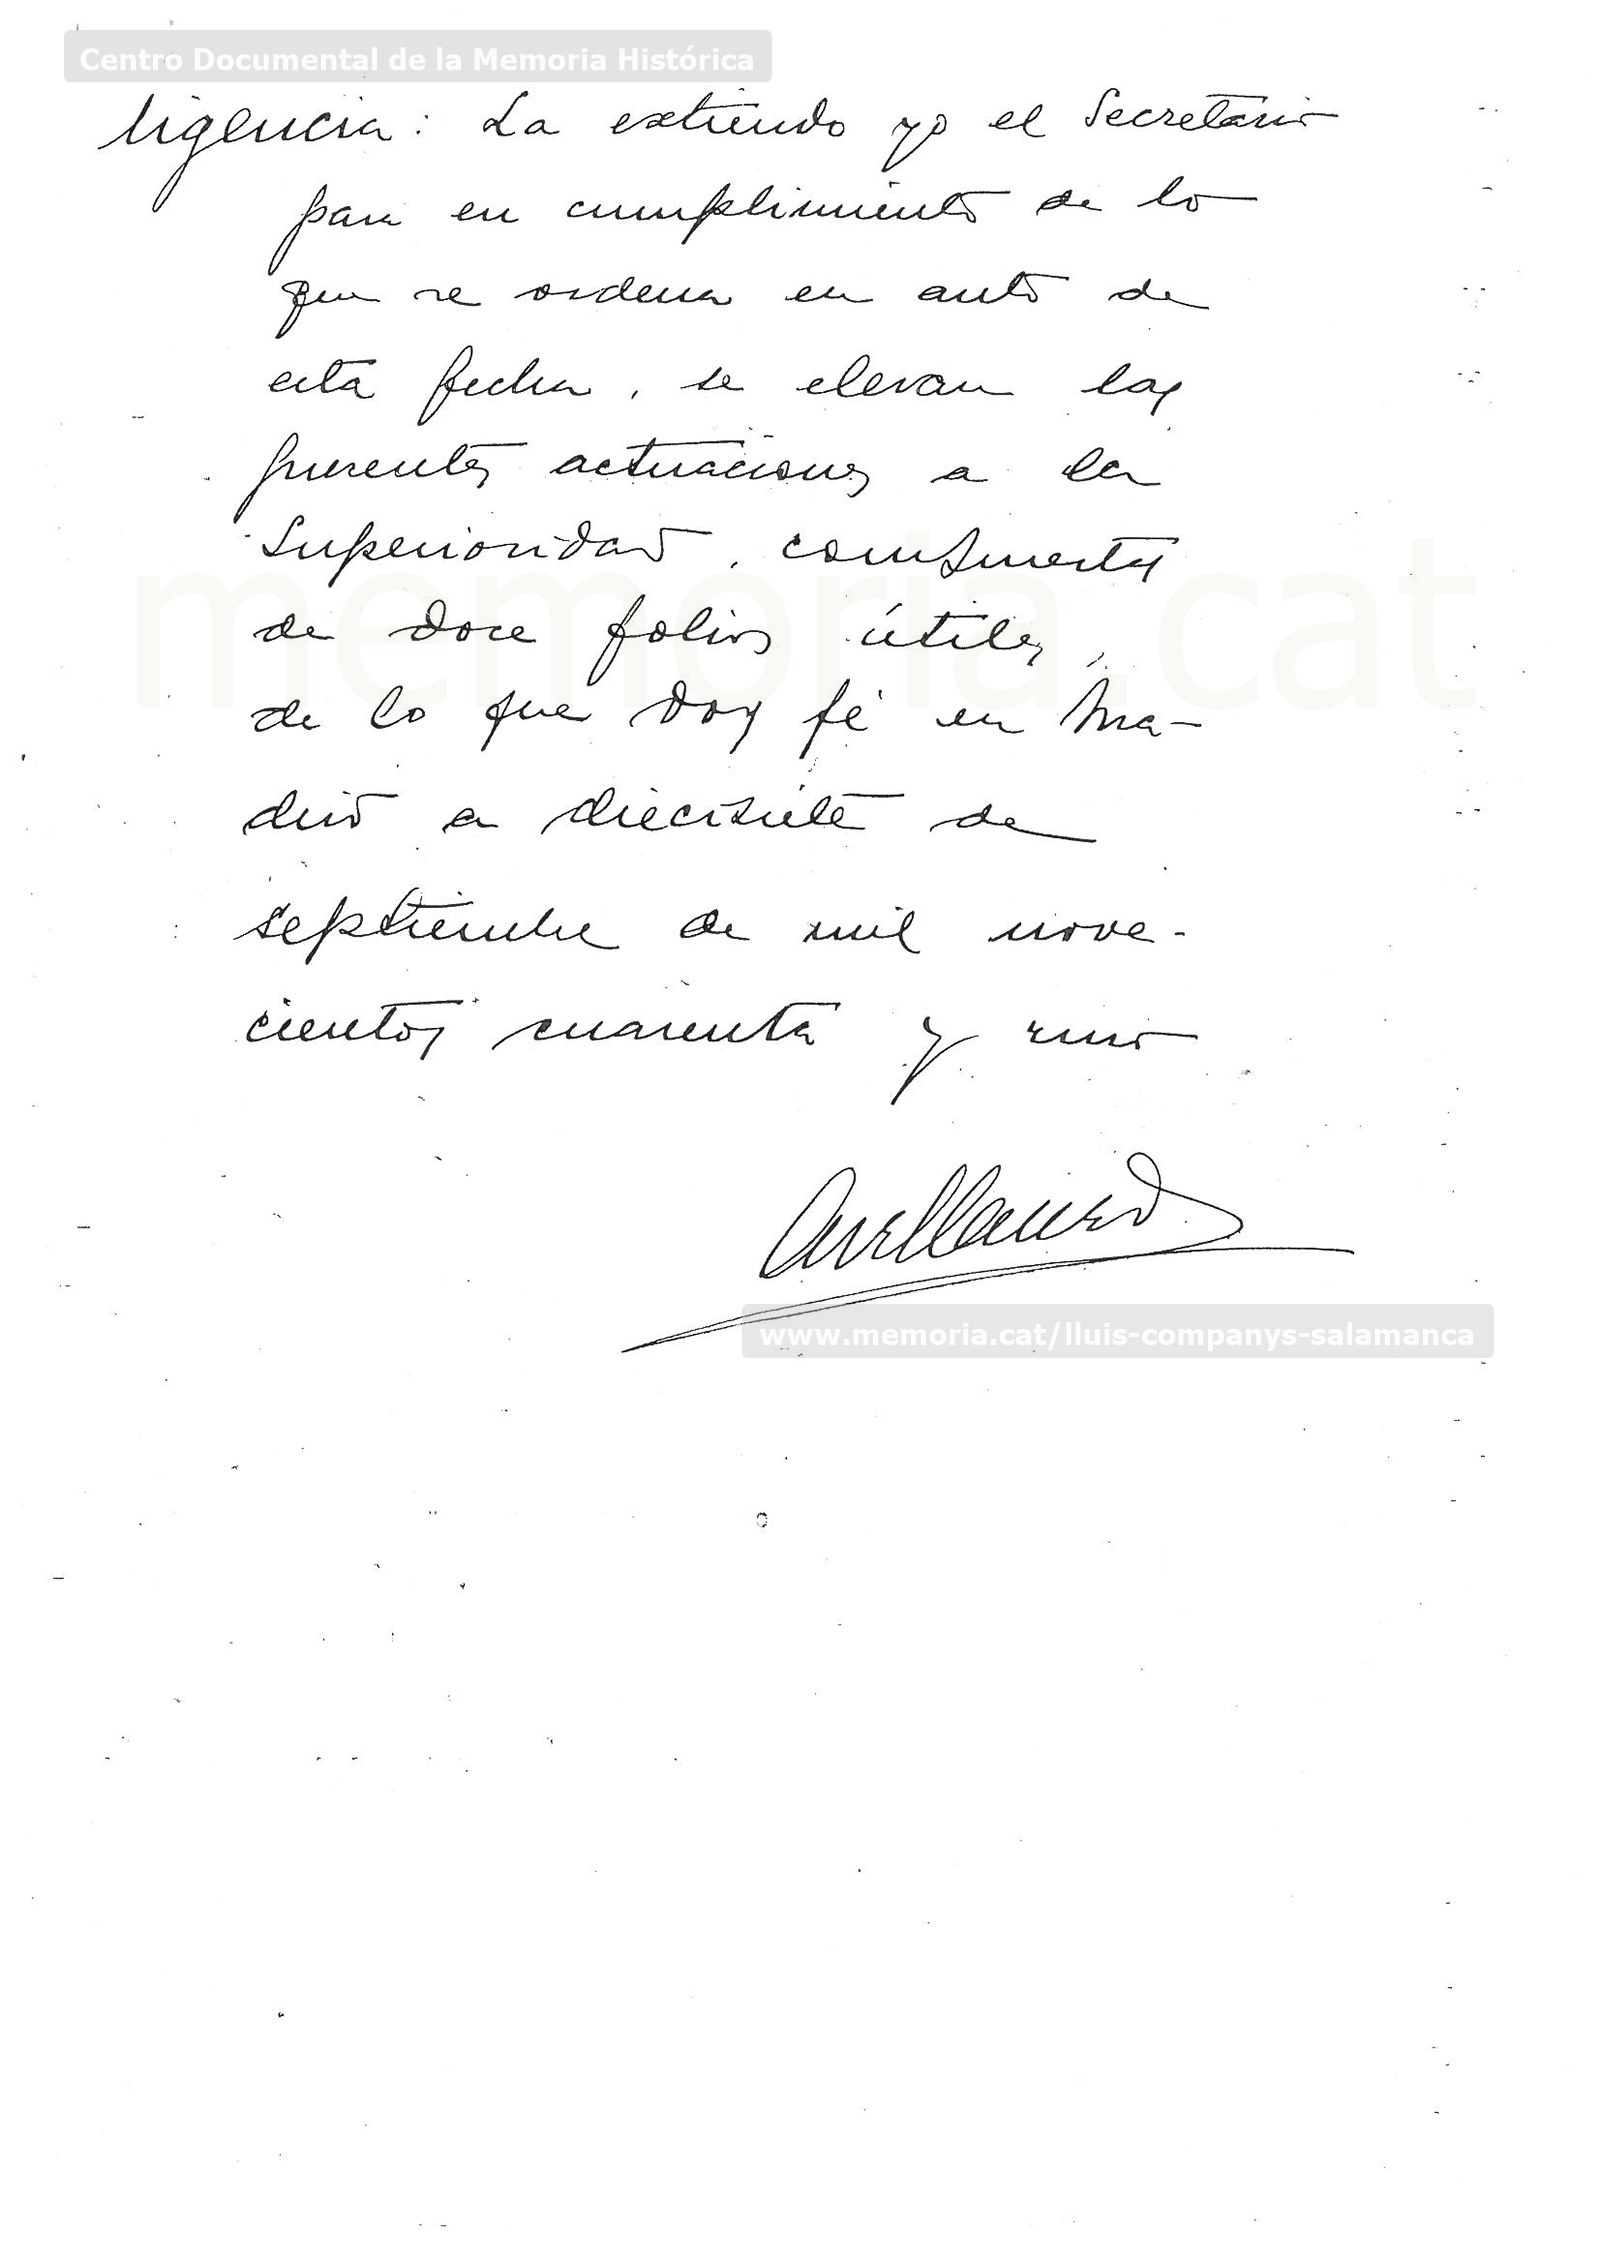 Centro Documental de la Memoria Histórica
ligencia: La extiendo yo el Secretario
para en cumplimiento de lo
que se ordena en auto de
esta fecha, se elevan las
presentes actuaciones a la
Superioridad, compuestas
de doce folios útiles,
de lo que doy fé en Ma-
drid a diecisiete de
septiembre de mil nove-
cientos cuarenta y uno
memoria.cat
Avellaned
www.memoria.cat/lluis-companys-salamanca